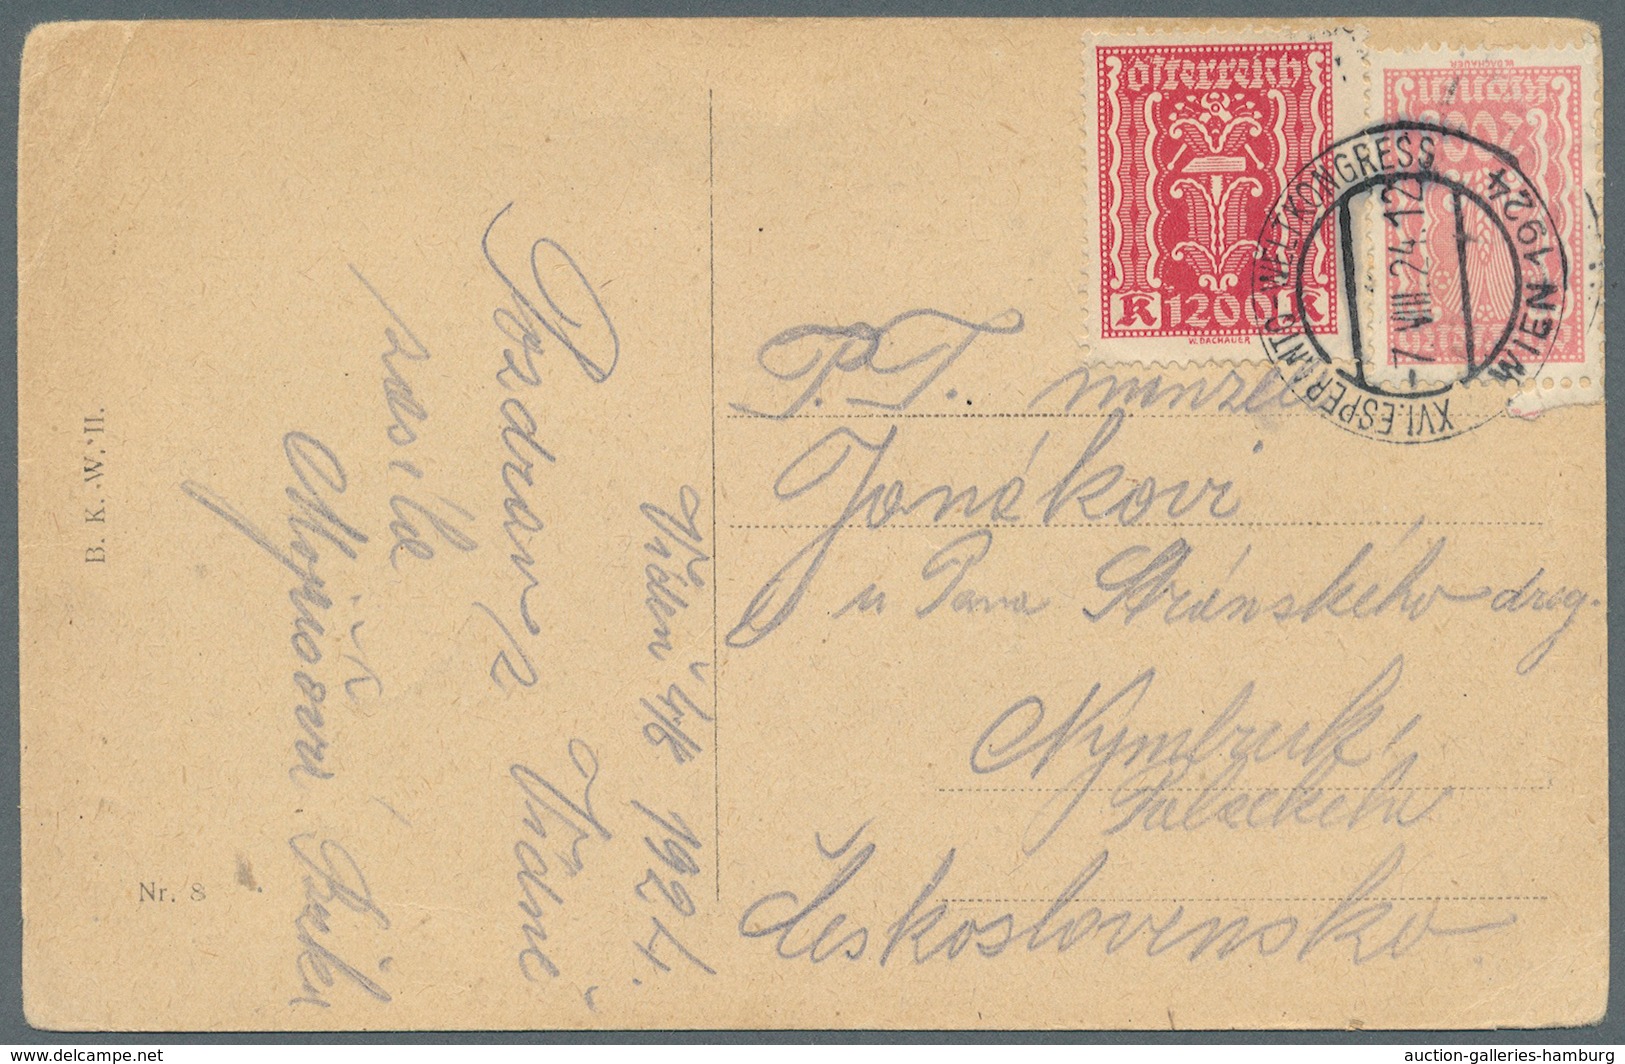 österreich
K 1200 K
W. DACHAUER
W. DACHAUER
Kronen
XVI. ESPERANTO WELTKONGRESS
WIEN 1924
-7. VIII. 24. 12
P. T.
Jonákovi
u Pana Stránského drog.
Nymburk,
Československo
Vídeň 4/8 1924.
Pozdrav z Vídně
zasílá
B. K. W. II.
Nr. 8
delcampe.net
auction-galleries-hamburg